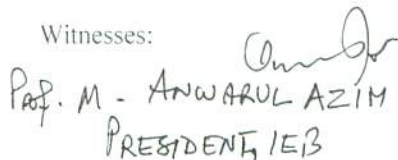 Witnesses:
Prof. M - ANWARUL AZIM
PRESIDENT, IEB